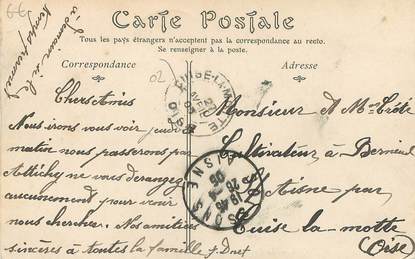 Carte Postale
Tous les pays étrangers n'acceptent pas la correspondance au recto.
Se renseigner à la poste.
Correspondance
Adresse
à demain si le
temps permet
Chers Amis
Nous irons vous voir jeudi
matin nous passerons par
Attichy ne vous dérangez
aucunement pour venir
nous chercher. Nos amitiés
sincères à toutes la famille
Monsieur & Mme
Cultivateur à Berneuil
S/ Aisne par
Cuise la-motte
(Oise)
CUISE-LA-MOTTE
OISE
SOISSONS
AISNE